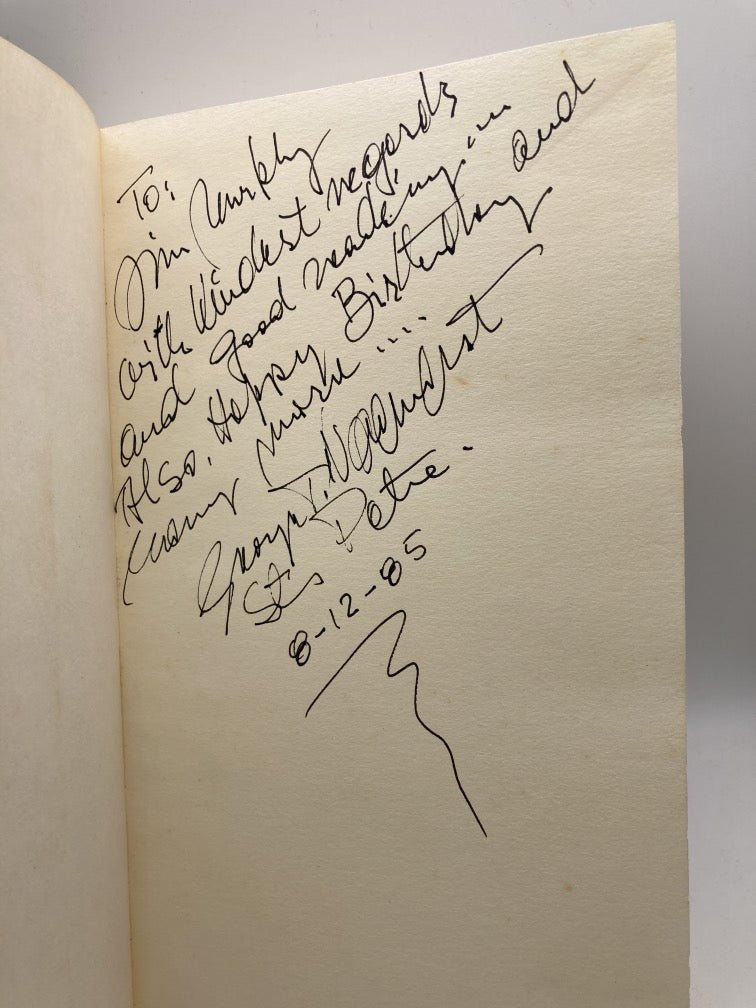 To:
Jim Murphy
with kindest regards
and good reading...
Also, Happy Birthday and
many more....
George T.
St. Pete.
8-12-85